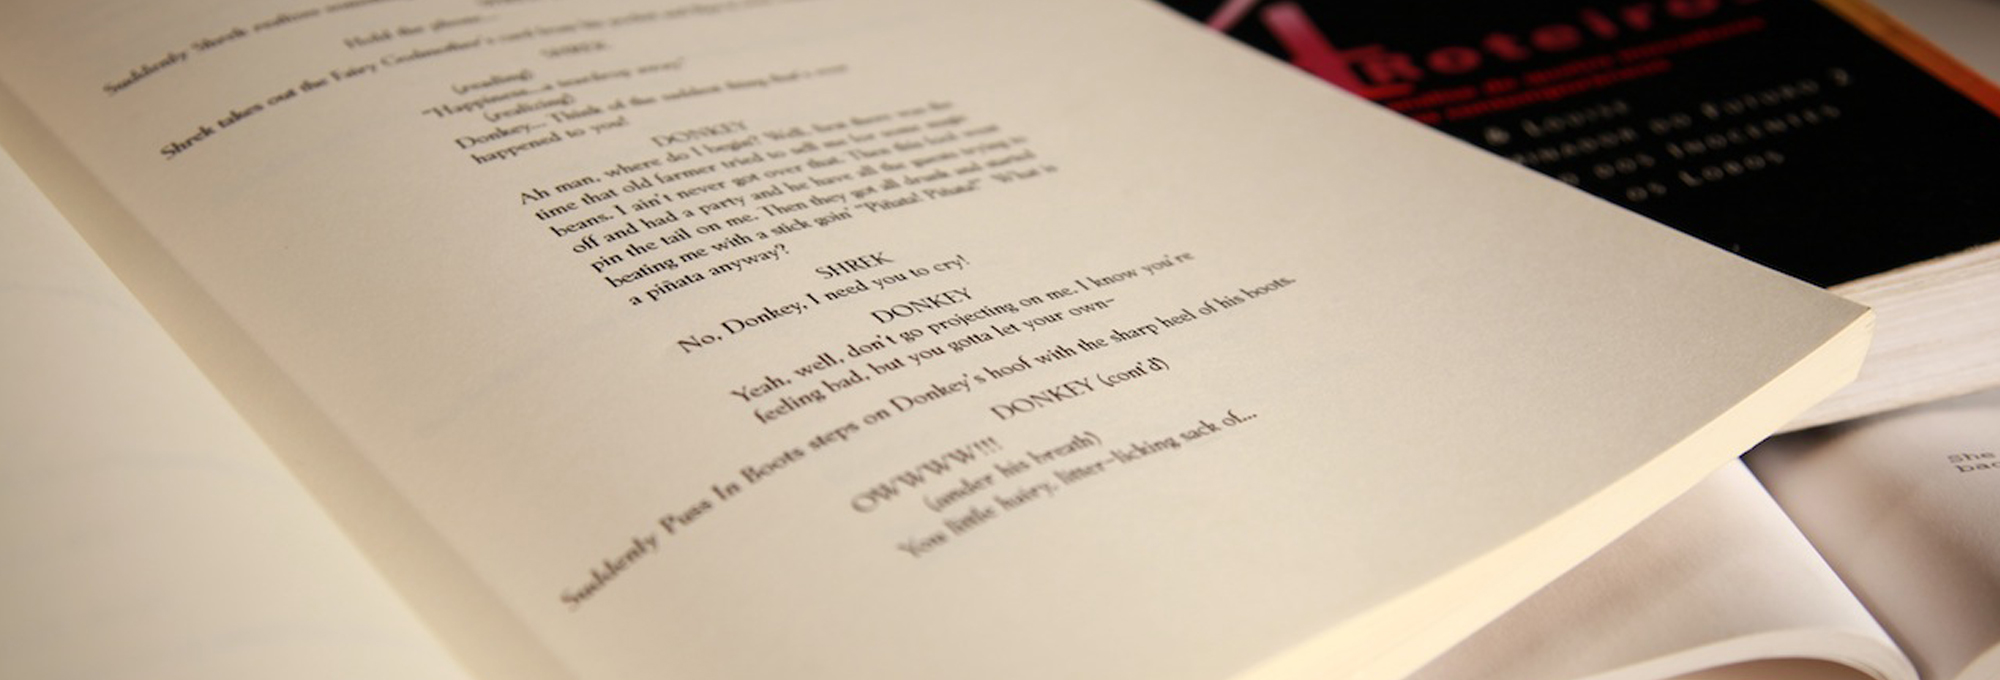 Suddenly Shrek realizes
Hold the phone...
Shrek takes out the Fairy Godmother's card from his pocket and
SHREK
(reading)
"Happiness...a teardrop away"
(realizing)
Donkey... Think of the saddest thing that's ever
happened to you!
DONKEY
Ah man, where do I begin? Well, first there was the
time that old farmer tried to sell me for some magic
beans. I ain't never got over that. Then this fool went
off and had a party and he have all the guests trying to
pin the tail on me. Then they got all drunk and started
beating me with a stick goin' "Piñata! Piñata!" What is
a piñata anyway?
SHREK
No, Donkey, I need you to cry!
DONKEY
Yeah, well, don't go projecting on me. I know you're
feeling bad, but you gotta let your own-
Suddenly Puss In Boots steps on Donkey's hoof with the sharp heel of his boots.
DONKEY (cont'd)
OWWWW!!!
(under his breath)
You little hairy, litter-licking sack of...
Roteiros
& Louise
do Futuro 2
dos Inocentes
os Lobos
She
bac